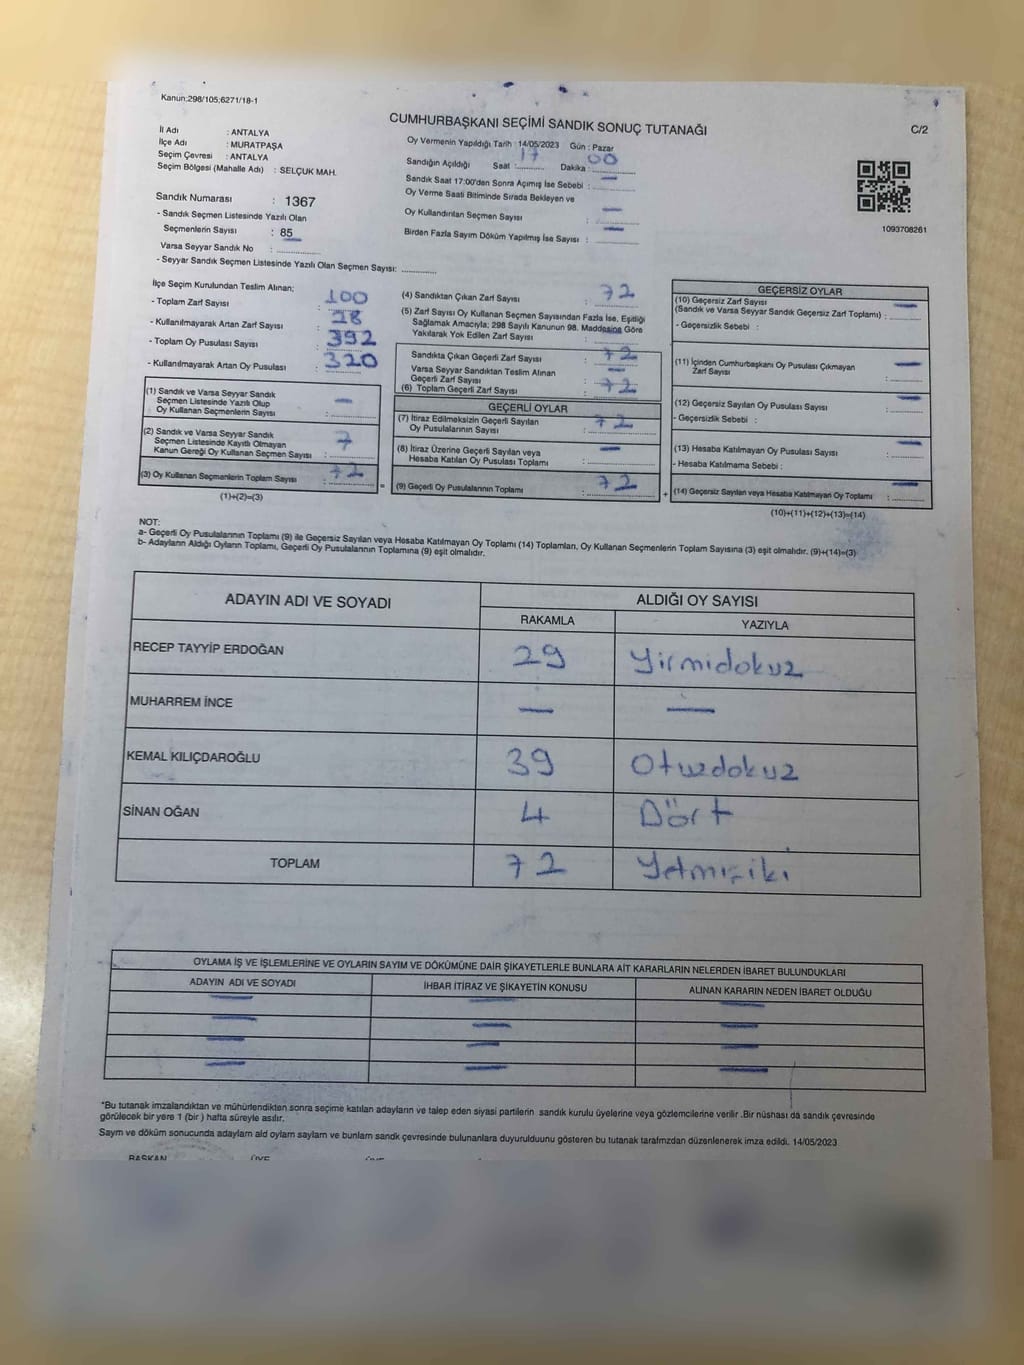 Kanun:298/105;6271/18-1
CUMHURBAŞKANI SEÇİMİ SANDIK SONUÇ TUTANAĞI
C/2
İl Adı : ANTALYA
İlçe Adı : MURATPAŞA
Seçim Çevresi : ANTALYA
Seçim Bölgesi (Mahalle Adı) : SELÇUK MAH.
Oy Vermenin Yapıldığı Tarih : 14/05/2023 Gün : Pazar
Sandığın Açıldığı Saat : 17 Dakika : 00
Sandık Saat 17:00'den Sonra Açımış İse Sebebi : —
Oy Verme Saati Bitiminde Sırada Bekleyen ve
Oy Kullandırılan Seçmen Sayısı : —
Birden Fazla Sayım Döküm Yapılmış İse Sayısı : —
1093708261
Sandık Numarası : 1367
- Sandık Seçmen Listesinde Yazılı Olan
Seçmenlerin Sayısı : 85
Varsa Seyyar Sandık No :
- Seyyar Sandık Seçmen Listesinde Yazılı Olan Seçmen Sayısı:
İlçe Seçim Kurulundan Teslim Alınan:
- Toplam Zarf Sayısı : 100
- Kullanılmayarak Artan Zarf Sayısı : 28
- Toplam Oy Pusulası Sayısı : 392
- Kullanılmayarak Artan Oy Pusulası : 320
(1) Sandık ve Varsa Seyyar Sandık
Seçmen Listesinde Yazılı Olup
Oy Kullanan Seçmenlerin Sayısı : —
(2) Sandık ve Varsa Seyyar Sandık
Seçmen Listesinde Kayıtlı Olmayan
Kanun Gereği Oy Kullanan Seçmen Sayısı : 7
(3) Oy Kullanan Seçmenlerin Toplam Sayısı : 72
(1)+(2)=(3)
(4) Sandıktan Çıkan Zarf Sayısı : 72
(5) Zarf Sayısı Oy Kullanan Seçmen Sayısından Fazla İse, Eşitliği
Sağlamak Amacıyla; 298 Sayılı Kanunun 98. Maddesine Göre
Yakılarak Yok Edilen Zarf Sayısı :
Sandıkta Çıkan Geçerli Zarf Sayısı : 72
Varsa Seyyar Sandıktan Teslim Alınan
Geçerli Zarf Sayısı : —
(6) Toplam Geçerli Zarf Sayısı : 72
GEÇERLİ OYLAR
(7) İtiraz Edilmeksizin Geçerli Sayılan
Oy Pusulalarının Sayısı : 72
(8) İtiraz Üzerine Geçerli Sayılan veya
Hesaba Katılan Oy Pusulası Toplamı : —
= (9) Geçerli Oy Pusulalarının Toplamı : 72
GEÇERSİZ OYLAR
(10) Geçersiz Zarf Sayısı
(Sandık ve Varsa Seyyar Sandık Geçersiz Zarf Toplamı) : —
- Geçersizlik Sebebi :
(11) İçinden Cumhurbaşkanı Oy Pusulası Çıkmayan
Zarf Sayısı : —
(12) Geçersiz Sayılan Oy Pusulası Sayısı : —
- Geçersizlik Sebebi :
(13) Hesaba Katılmayan Oy Pusulası Sayısı : —
- Hesaba Katılmama Sebebi :
+ (14) Geçersiz Sayılan veya Hesaba Katılmayan Oy Toplamı : —
(10)+(11)+(12)+(13)=(14)
NOT:
a- Geçerli Oy Pusulalarının Toplamı (9) ile Geçersiz Sayılan veya Hesaba Katılmayan Oy Toplamı (14) Toplamları, Oy Kullanan Seçmenlerin Toplam Sayısına (3) eşit olmalıdır. (9)+(14)=(3)
b- Adayların Aldığı Oyların Toplamı, Geçerli Oy Pusulalarının Toplamına (9) eşit olmalıdır.
ADAYIN ADI VE SOYADI ALDIĞI OY SAYISI
RAKAMLA YAZIYLA
RECEP TAYYİP ERDOĞAN 29 Yirmidokuz
MUHARREM İNCE — —
KEMAL KILIÇDAROĞLU 39 Otuzdokuz
SİNAN OĞAN 4 Dört
TOPLAM 72 Yetmişiki
OYLAMA İŞ VE İŞLEMLERİNE VE OYLARIN SAYIM VE DÖKÜMÜNE DAİR ŞİKAYETLERLE BUNLARA AİT KARARLARIN NELERDEN İBARET BULUNDUKLARI
ADAYIN ADI VE SOYADI İHBAR İTİRAZ VE ŞİKAYETİN KONUSU ALINAN KARARIN NEDEN İBARET OLDUĞU
— — —
— — —
— — —
— — —
*Bu tutanak imzalandıktan ve mühürlendikten sonra seçime katılan adayların ve talep eden siyasi partilerin sandık kurulu üyelerine veya gözlemcilerine verilir .Bir nüshası da sandık çevresinde
görülecek bir yere 1 (bir ) hafta süreyle asılır.
Sayım ve döküm sonucunda adayların ald oyların sayların ve bunların sandk çevresinde bulunanlara duyurulduunu gösteren bu tutanak tarafmzdan düzenlenerek imza edildi. 14/05/2023
BAŞKAN ÜYE